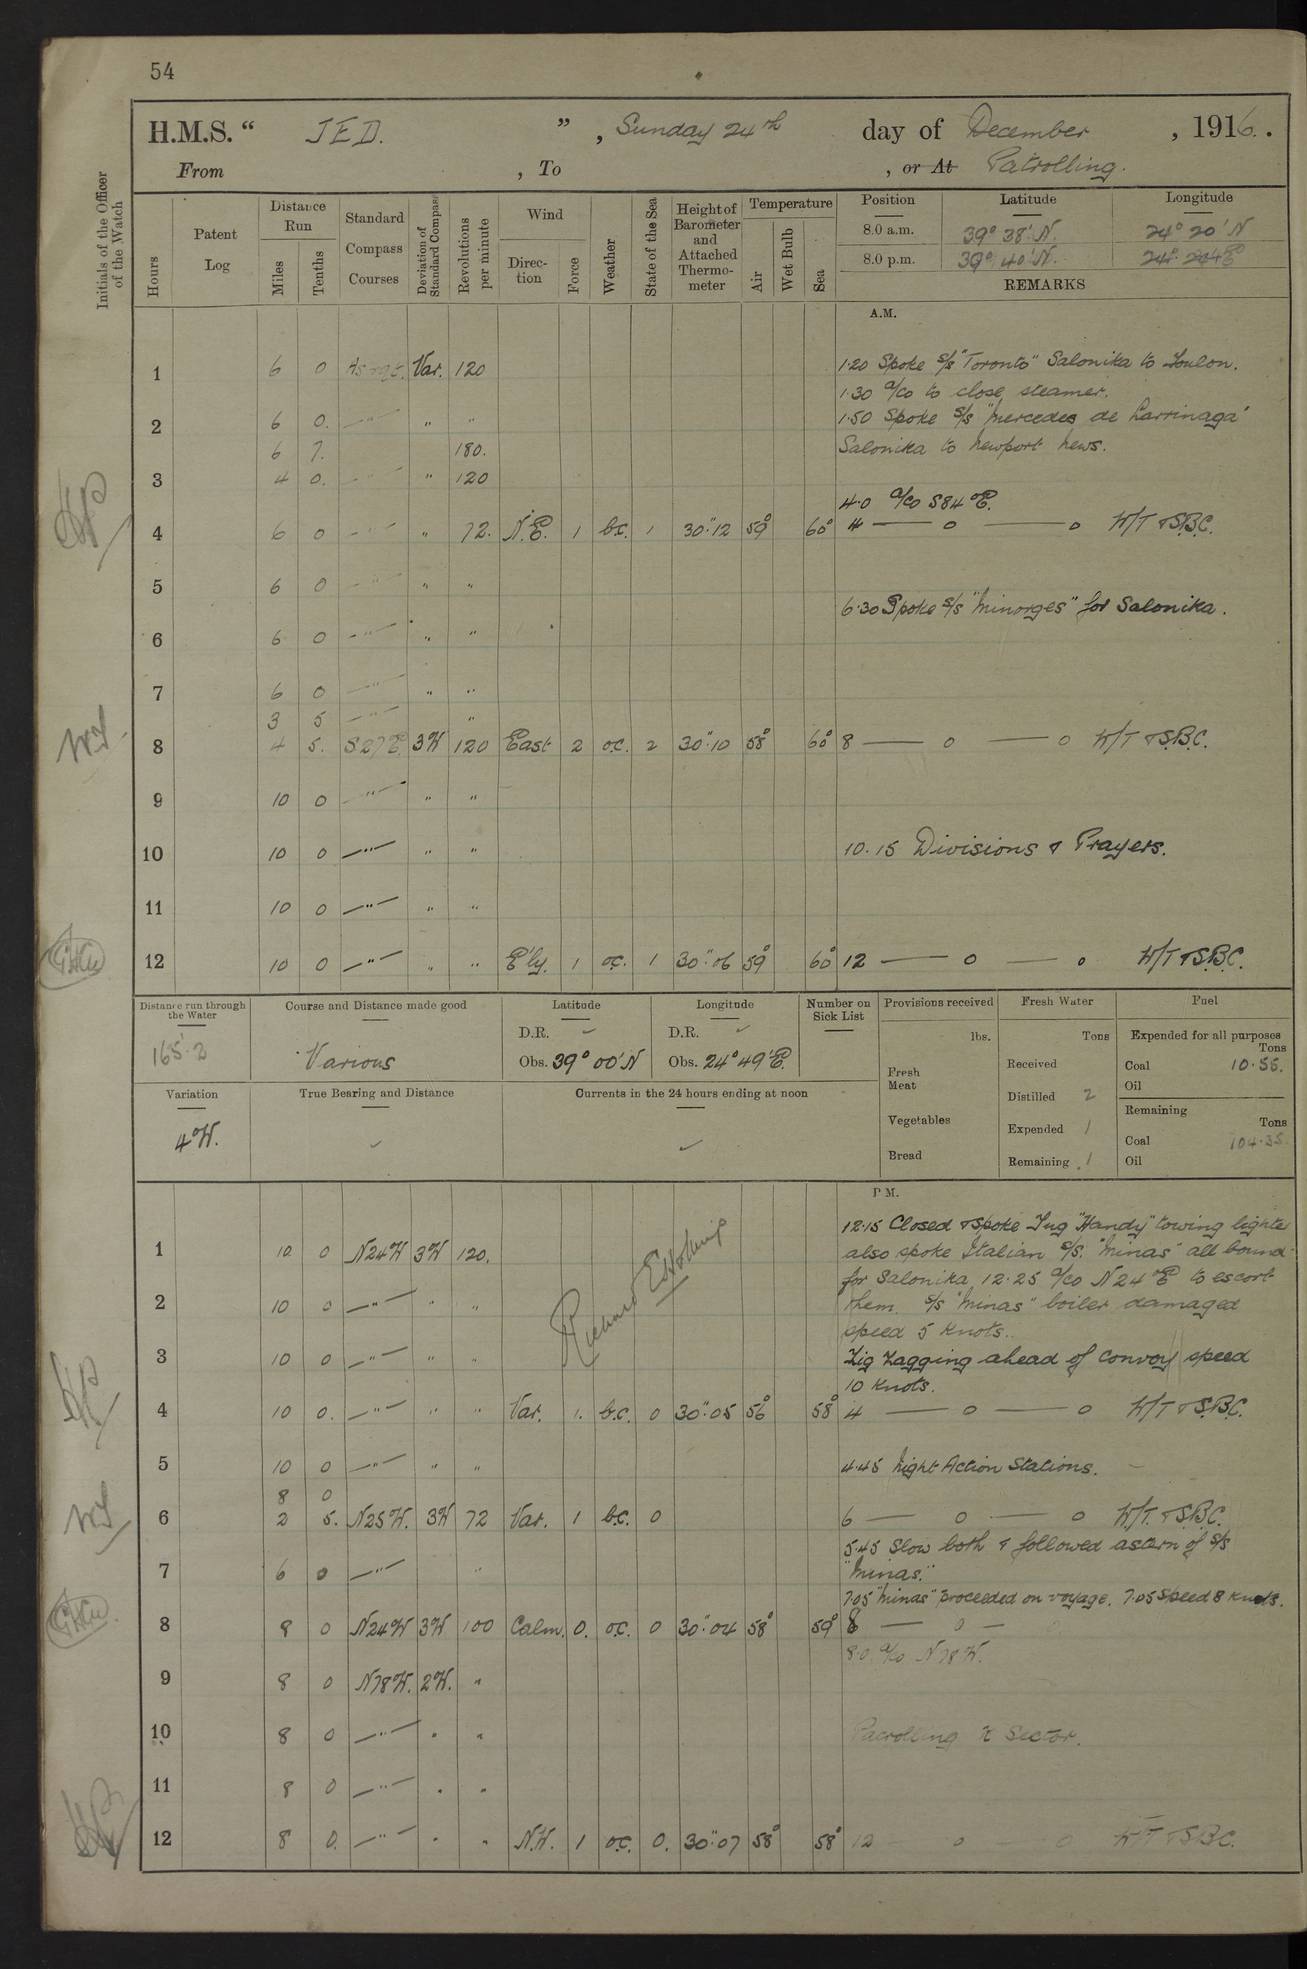 54
H.M.S. “ JED. ” , Sunday 24th day of December , 1916.
From , To , or At Patrolling.
Initials of the Officer of the Watch
Hours
Patent Log
Distance Run
Miles
Tenths
Standard Compass Courses
Deviation of Standard Compass
Revolutions per minute
Wind
Direction
Force
Weather
State of the Sea
Height of Barometer and Attached Thermometer
Temperature
Air
Wet Bulb
Sea
Position Latitude Longitude
8.0 a.m. 39° 38' N. 24° 20' N
8.0 p.m. 39° 40' N.
REMARKS
A.M.
1 6 0 Var. 120 1·20 Spoke s/s "Toronto" Salonika to Toulon.
1·30 a/co to close steamer.
2 6 0. " " 1·50 Spoke s/s "Mercedes de Larrinaga"
6 7. 180. Salonika to Newport News.
3 4 0. " " 120
4·0 a/co S84°E.
4 6 0 " " 72. N.E. 1 b.c. 1 30".12 59° 60° 4 — o — o W/T & S.B.C.
5 6 0 " " "
6·30 Spoke s/s "Minorges" for Salonika.
6 6 0 " " "
7 6 0 " " "
3 5 " "
8 4 5. S27E. 3W 120 East 2 o.c. 2 30".10 58° 60° 8 — o — o W/T & S.B.C.
9 10 0 " " "
10 10 0 " " " 10.15 Divisions & Prayers.
11 10 0 " " "
12 10 0 " " " E'ly. 1 o.c. 1 30".06 59° 60° 12 — o — o W/T & S.B.C.
Distance run through the Water
165'.2
Course and Distance made good
Various
Latitude
D.R.
Obs. 39° 00' N
Longitude
D.R.
Obs. 24° 49' E.
Number on Sick List
Provisions received
lbs.
Fresh Meat
Vegetables
Bread
Fresh Water
Tons
Received
Distilled 2
Expended 1
Remaining 1
Fuel
Expended for all purposes
Tons
Coal 10.55.
Oil
Remaining
Tons
Coal 104.35.
Oil
Variation
4°W.
True Bearing and Distance
Currents in the 24 hours ending at noon
P.M.
12·15 Closed & spoke Tug "Handy" towing lighter
1 10 0 N24W 3W 120. also spoke Italian s/s. "Minas" all bound
for Salonika, 12.25 a/co N24°E to escort
2 10 0 " " " them. s/s "Minas" boiler damaged
speed 5 knots.
3 10 0 " " " Zig Zagging ahead of convoy speed
10 knots.
4 10 0. " " " Var. 1. b.c. 0 30".05 56° 58° 4 — o — o W/T & S.B.C.
5 10 0 " " " 4.45 Night Action Stations.
8 0
6 2 5. N25W. 3W 72 Var. 1 b.c. 0 6 — o — o W/T. & S.B.C.
5·45 Slow both & followed astern of s/s
7 6 0 " " "Minas."
7.05 "Minas" proceeded on voyage. 7.05 Speed 8 knots.
8 8 0 N24W 3W 100 Calm. 0. o.c. 0 30".04 58° 59° 8 — o —
8.0 a/co N78W.
9 8 0 N78W. 2W. "
10 8 0 " " " Patrolling K Sector.
11 8 0 " " "
12 8 0. " " " N.W. 1 o.c. 0. 30".07 58° 58° 12 — o — o W/T & S.B.C.